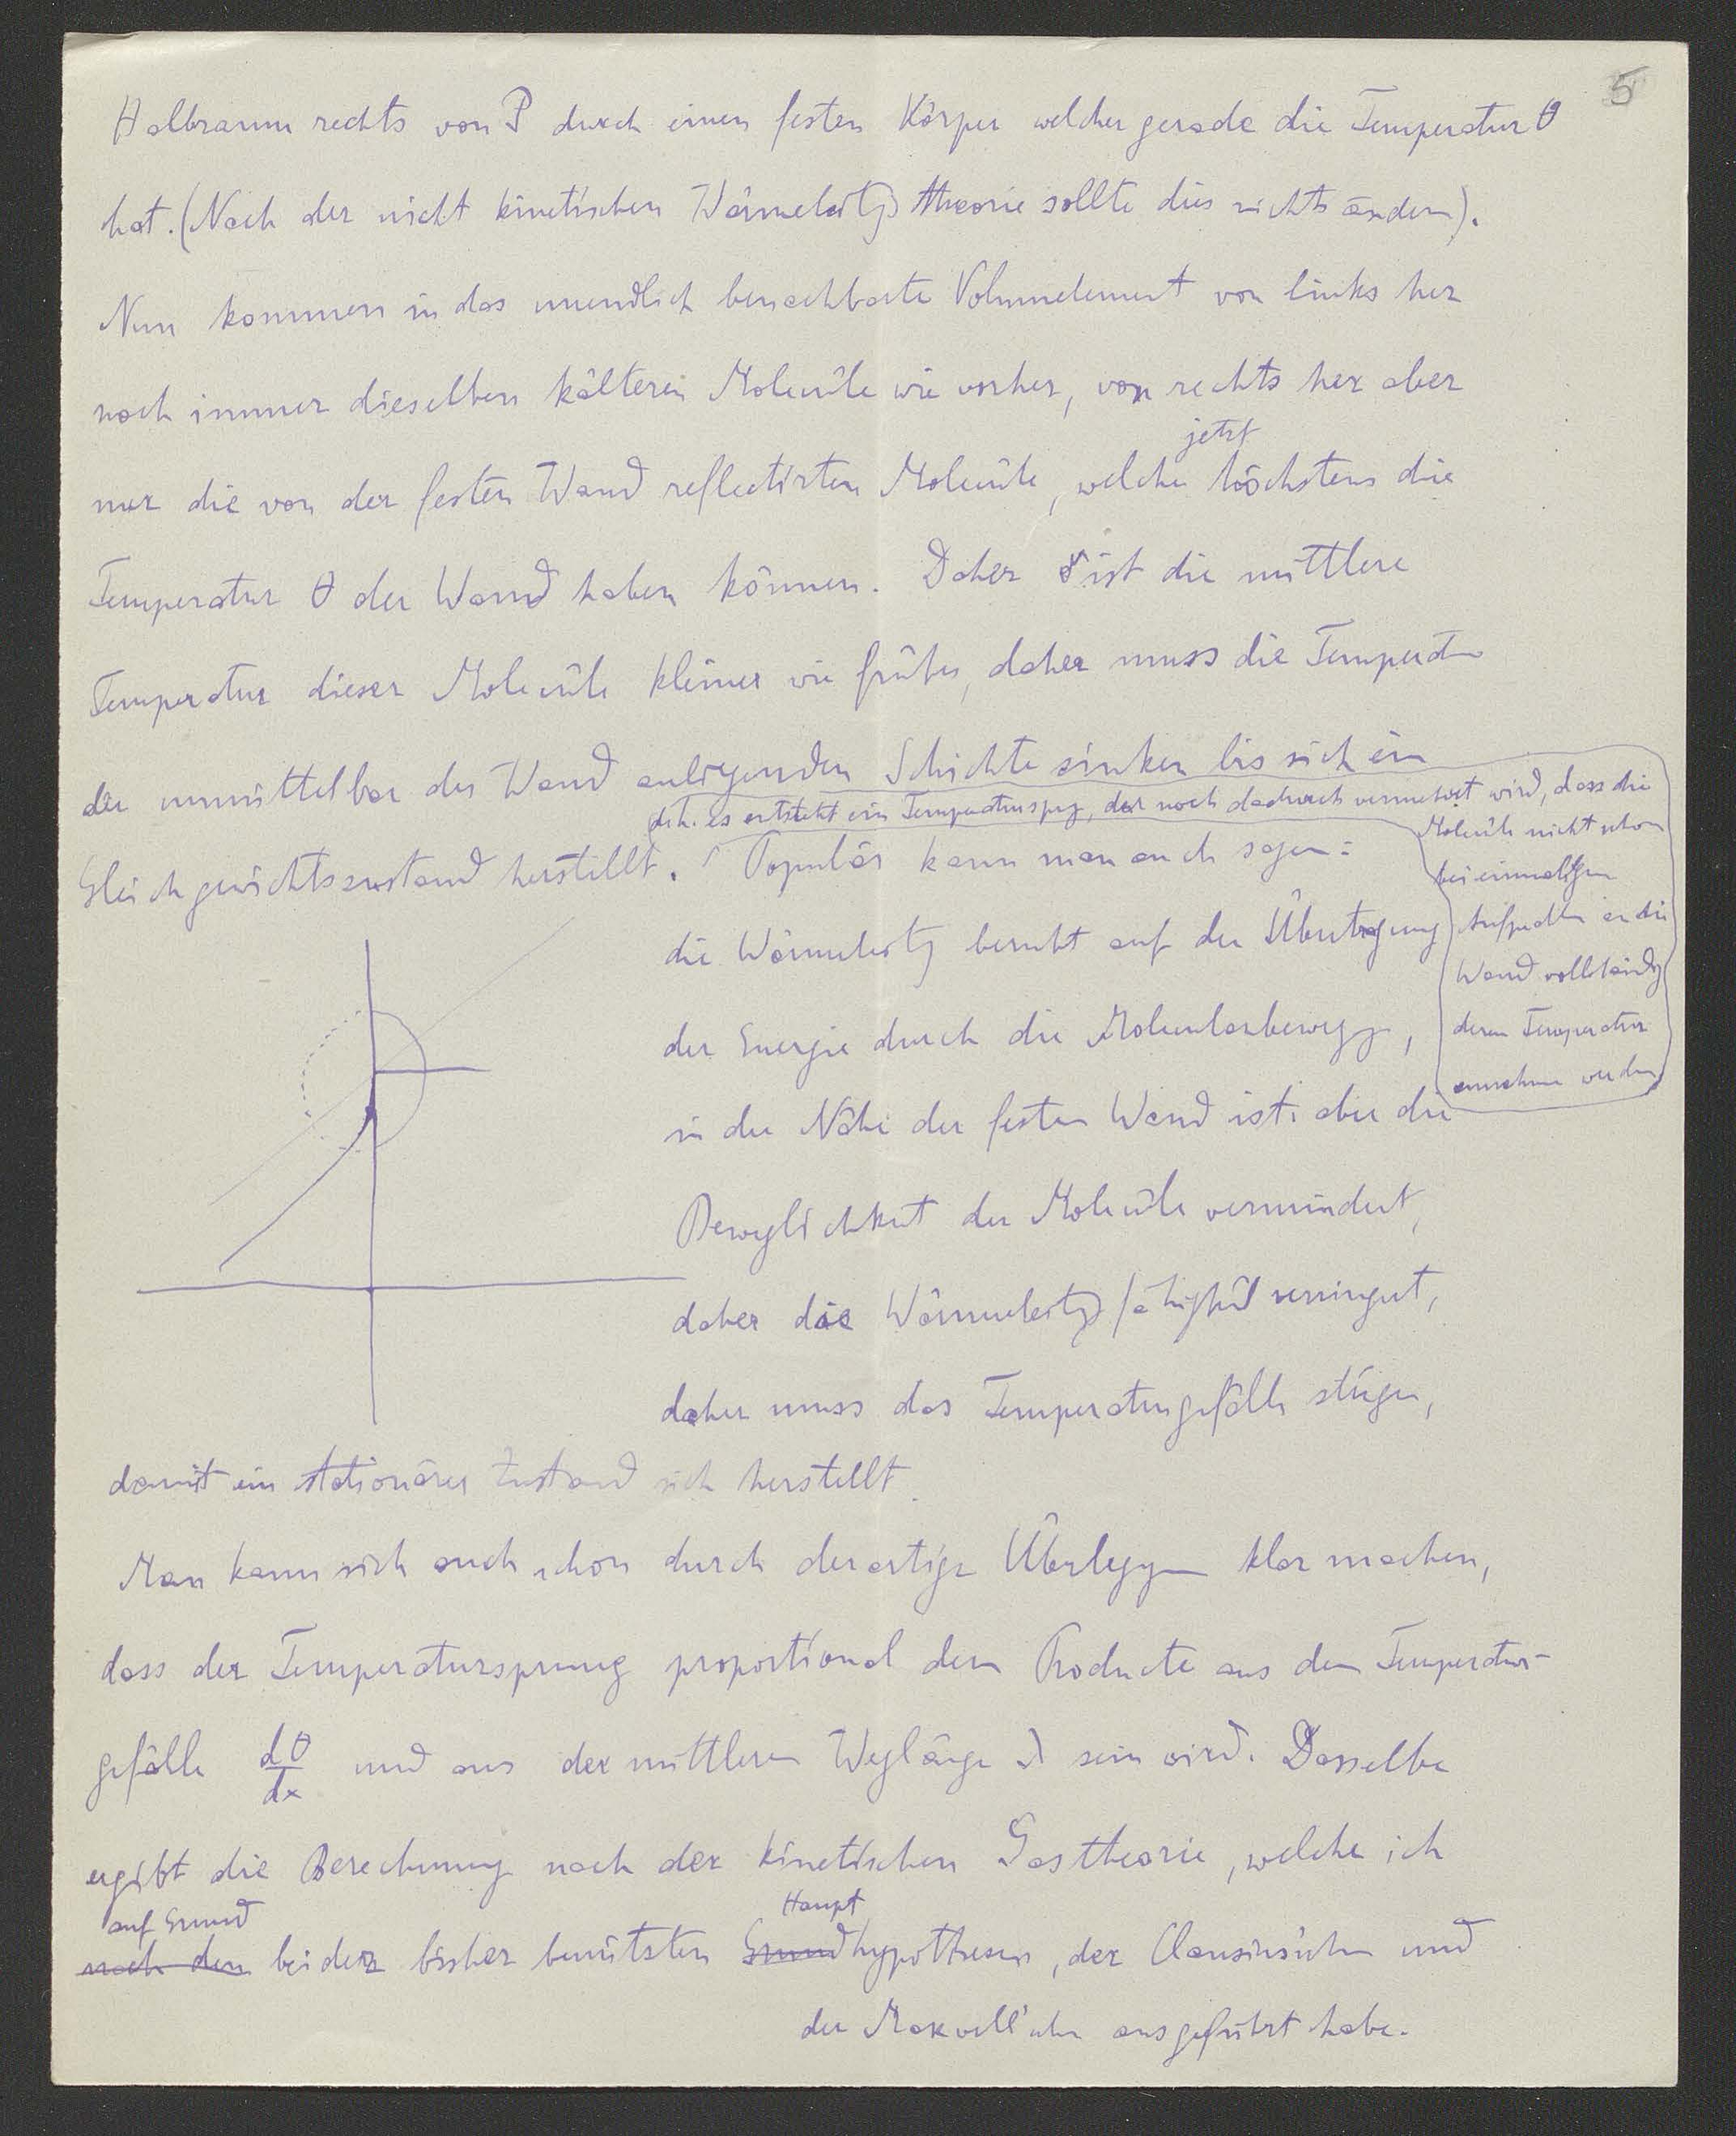 5
Halbraum rechts von P durch einen festen Körper welcher gerade die Temperatur θ
hat. (Nach der nicht kinetischen Wärmeleitgs theorie sollte dies nichts ändern).
Nun kommen in das unendlich benachbarte Volumelement von links her
noch immer dieselben kälteren Moleküle wie vorher, von rechts her aber
jetzt
nur die von der festen Wand reflectirten Moleküle, welche höchstens die
Temperatur θ der Wand haben können. Daher ist die mittlere
Temperatur dieser Moleküle kleiner wie früher, daher muss die Temperatur
der unmittelbar der Wand anliegenden Schichte sinken bis sich ein
Gleichgewichtszustand herstellt. Populär kann man auch sagen:
d.h. es entsteht ein Temperatursprg, der noch dadurch vermehrt wird, dass die
Moleküle nicht schon
bei einmaligem
Aufprallen an die
Wand vollständig
deren Temperatur
annehmen werden
die Wärmeleitg beruht auf der Übertragung
der Energie durch die Molecularbewegg,
in der Nähe der festen Wand ist aber die
Beweglichkeit der Moleküle vermindert,
daher die Wärmeleitgsfähigkeit verringert,
daher muss das Temperaturgefälle steigen,
damit ein stationärer Zustand sich herstellt.
Man kann sich auch schon durch derartige Überleggen klar machen,
dass der Temperatursprung proportional dem Producte aus dem Temperatur-
gefälle dθ/dx und aus der mittleren Weglänge λ sein wird. Dasselbe
ergibt die Berechnung nach der kinetischen Gastheorie, welche ich
auf Grund Haupt
nach den beider bisher benützten Grundhypothesen, der Clausius'schen und
der Maxwell'schen ausgeführt habe.